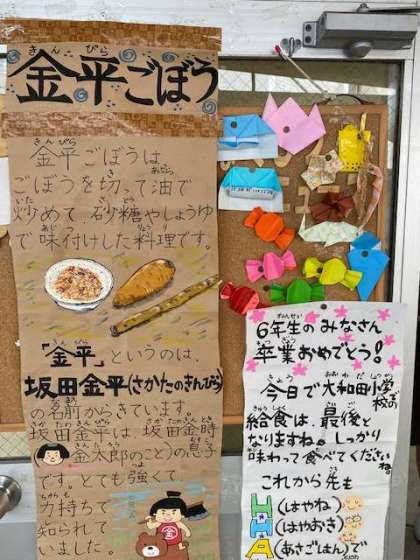 金平ごぼう
金平ごぼうは、
ごぼうを切って油で
炒めて、砂糖やしょうゆ
で味付けした料理です。
「金平」というのは、
坂田金平(さかたのきんぴら)
の名前からきています。
坂田金平は、坂田金時
(金太郎のこと)の息子
です。とても強くて、
力持ちで
知られて
いました。
金
6年生のみなさん
卒業おめでとう!
今日で大和田小学校の
給食は、最後と
なりますね。しっかり
味わって食べてくださいね。
これから先も
H(はやね)
H(はやおき)
A(あさごはん)で